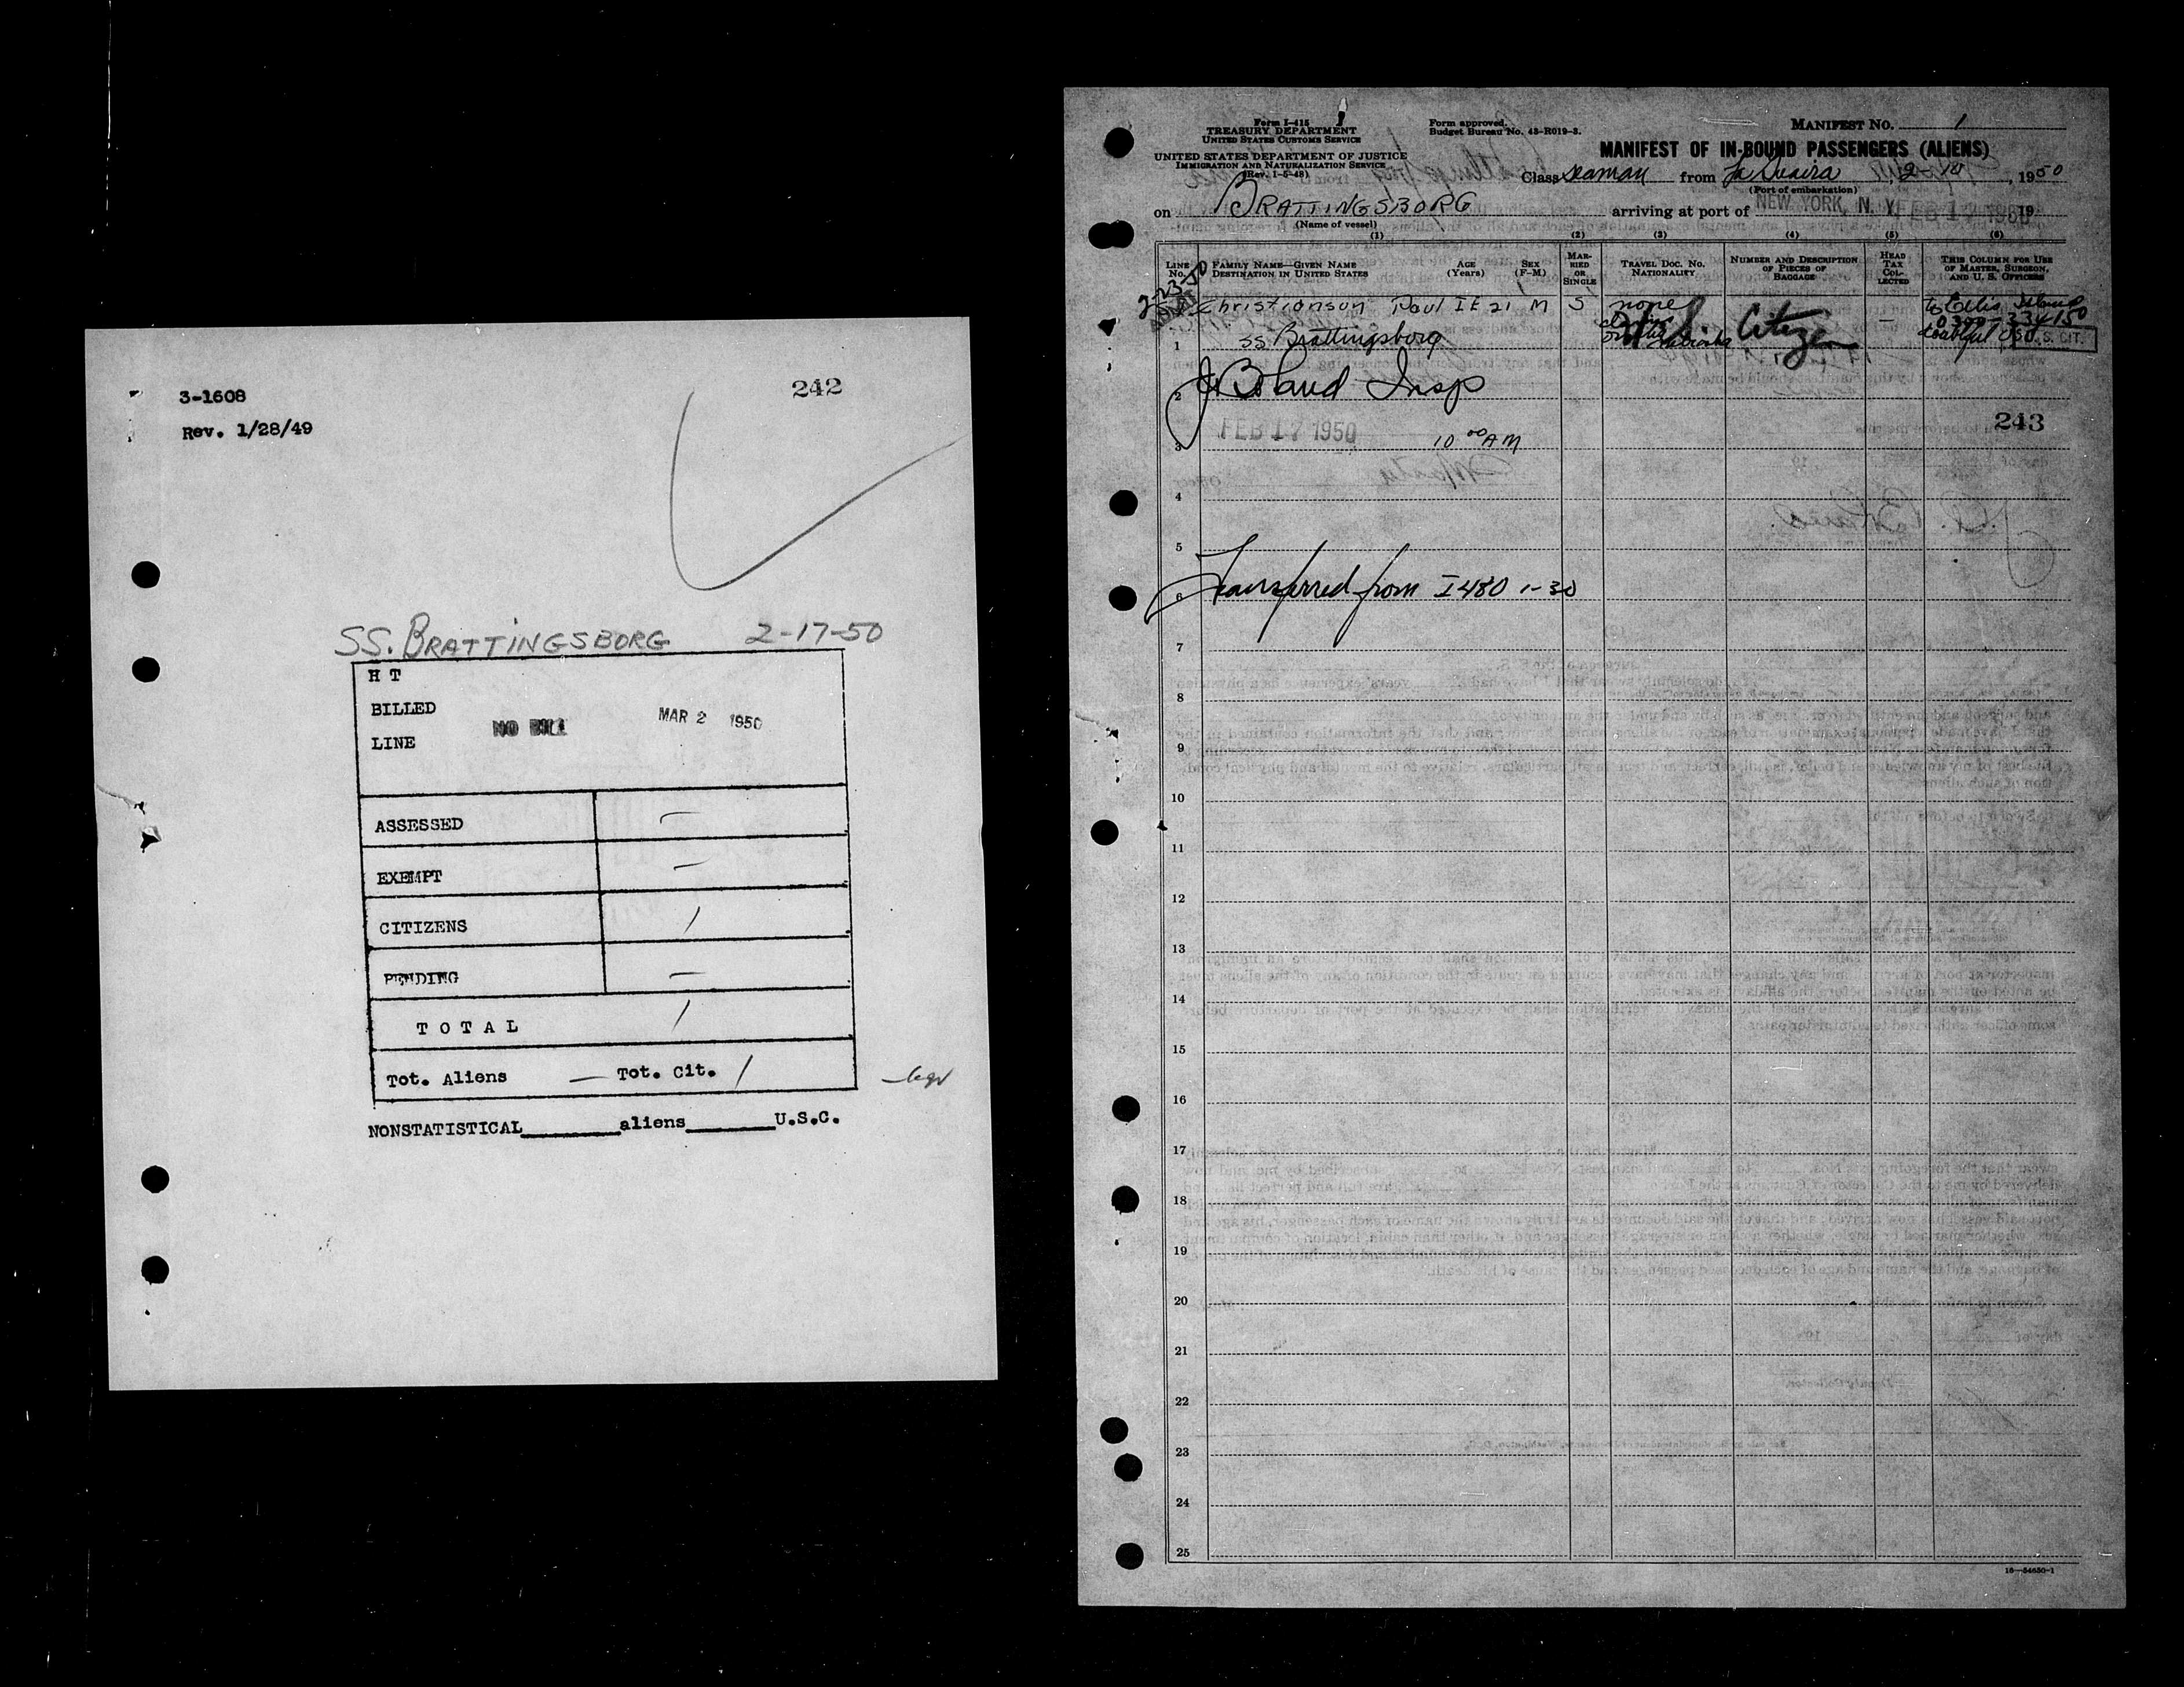 242
3-1608
Rev. 1/28/49
SS. BRATTINGSBORG 2-17-50
H T
BILLED
NO BILL MAR 2 1950
LINE
ASSESSED —
EXEMPT —
CITIZENS 1
PENDING —
T O T A L 1
Tot. Aliens — Tot. Cit. 1
NONSTATISTICAL aliens U.S.C.
Form I-415
TREASURY DEPARTMENT
UNITED STATES CUSTOMS SERVICE
UNITED STATES DEPARTMENT OF JUSTICE
IMMIGRATION AND NATURALIZATION SERVICE
(Rev. 1-5-48)
Form approved.
Budget Bureau No. 43-R019-3.
MANIFEST NO. 1
MANIFEST OF IN-BOUND PASSENGERS (ALIENS)
Class seaman from La Guaira, 2 10, 1950
(Port of embarkation)
on BRATTINGSBORG arriving at port of NEW YORK, N. Y. FEB 17 1950 19
(Name of vessel)
(1) (2) (3) (4) (5) (6)
LINE No. FAMILY NAME—GIVEN NAME DESTINATION IN UNITED STATES AGE (Years) SEX (F-M) MARRIED OR SINGLE TRAVEL DOC. NO. NATIONALITY NUMBER AND DESCRIPTION OF PIECES OF BAGGAGE HEAD TAX COLLECTED THIS COLUMN FOR USE OF MASTER, SURGEON, AND U. S. OFFICERS
2-23-50
Christianson Paul IE 21 M S none Citizen — to Ellis Island
1 SS Brattingsborg U.S. CIT.
2 J Boland Insp
243
3 FEB 17 1950 10 00 AM
4
5
6 Transferred from I 480 1-30
7
8
9
10
11
12
13
14
15
16
17
18
19
20
21
22
23
24
25
16—54650-1